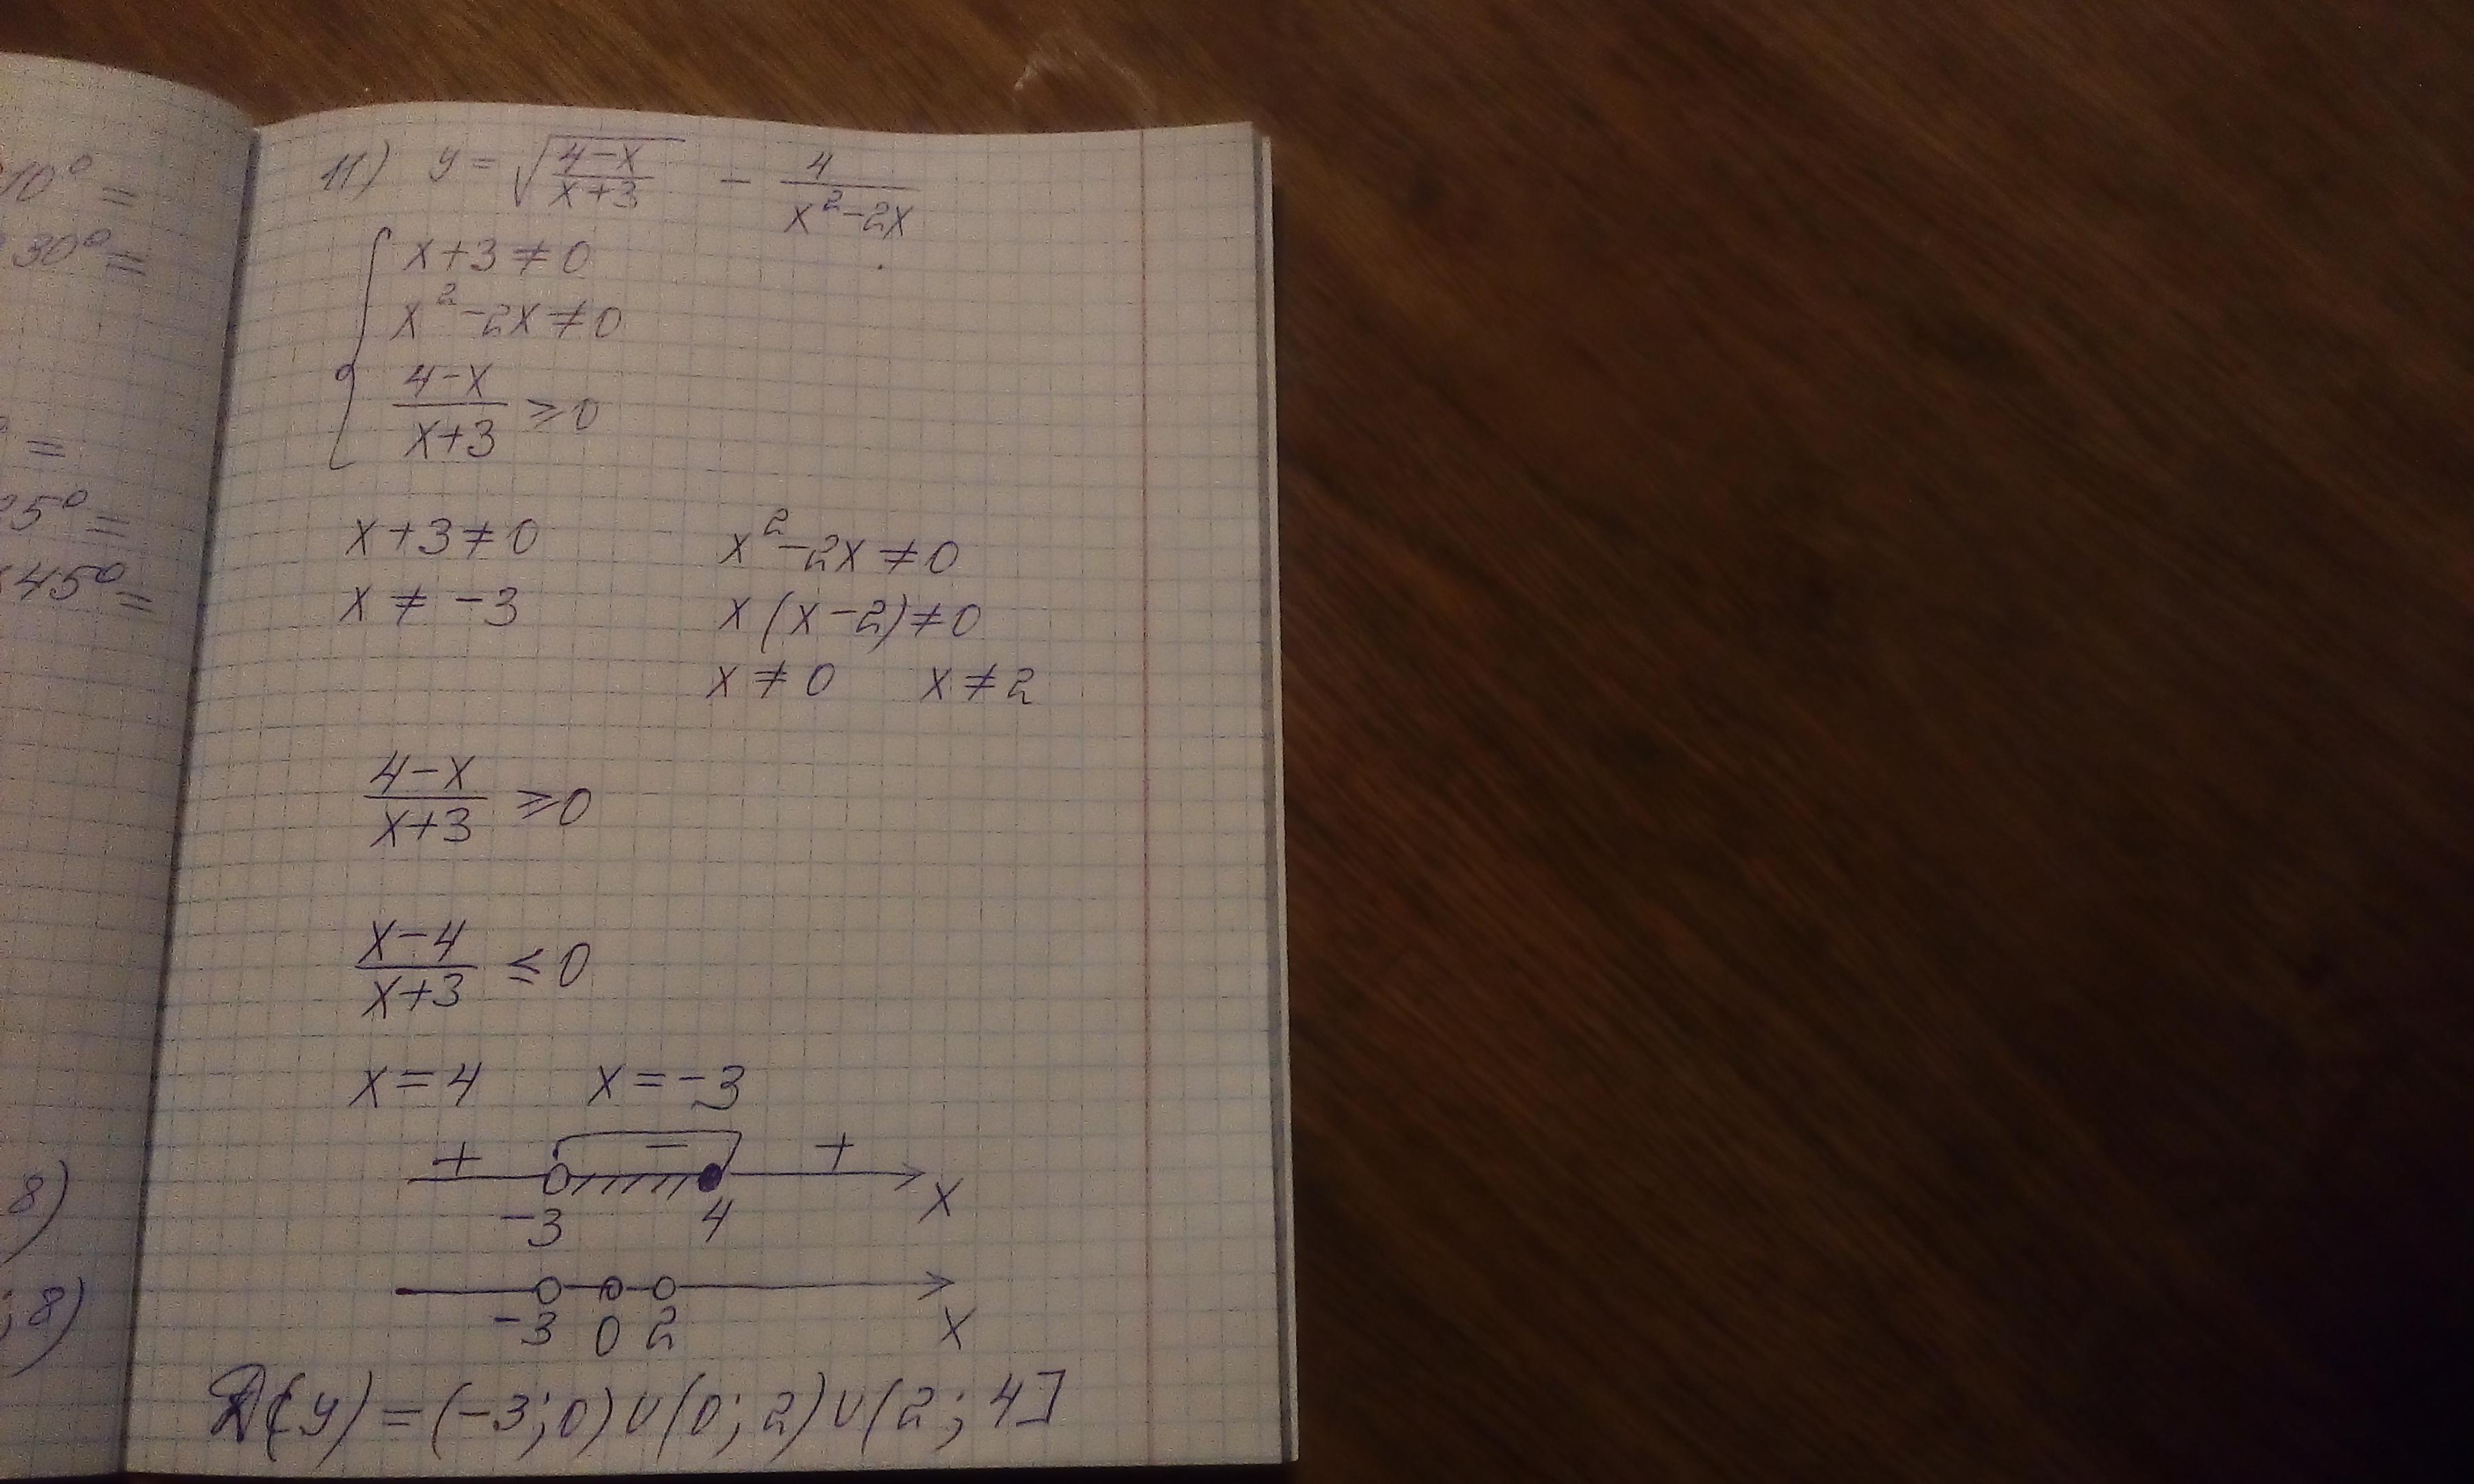 10° =
30° =
=
25° =
45° =
8)
; 8)
11) y = √((4-x)/(x+3)) - 4/(x²-2x)
{ x+3≠0
x²-2x≠0
(4-x)/(x+3) ⩾0
x+3≠0 x²-2x≠0
x ≠ -3 x(x-2)≠0
x ≠ 0 x ≠ 2
(4-x)/(x+3) ⩾0
(x-4)/(x+3) ⩽ 0
x=4 x=-3
+ - +
-3 4 x
-3 0 2 x
D(y) = (-3; 0) ∪ (0; 2) ∪ (2; 4]